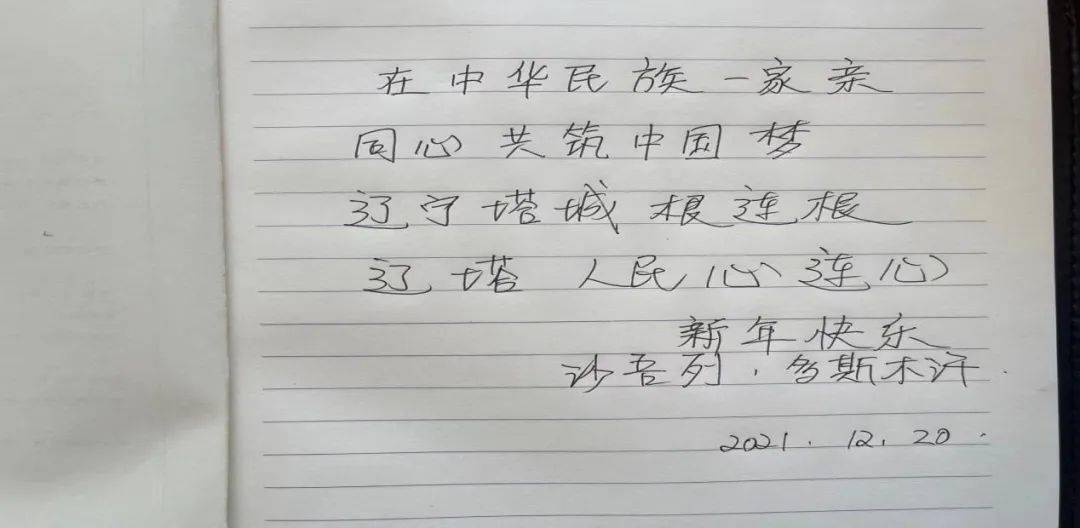 在中华民族一家亲
同心共筑中国梦
辽宁塔城根连根
辽塔人民心连心
新年快乐
沙吾列·多斯木汗
2021.12.20.